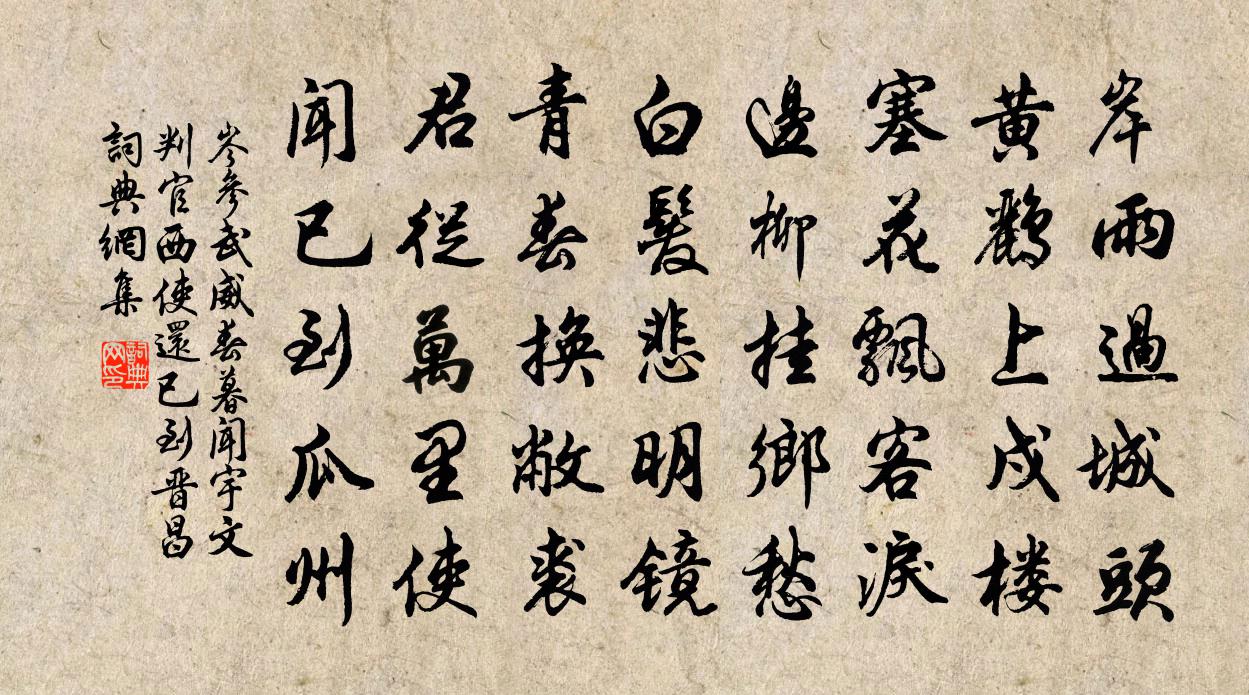 岸雨過城頭
黄鸝上戍楼
塞花飄客淚
邊柳挂鄉愁
白髮悲明镜
青春換敝裘
君從萬里使
聞已到瓜州
岑參武威春暮聞宇文
判官西使還已到晋昌
詞典網集
詞典网印